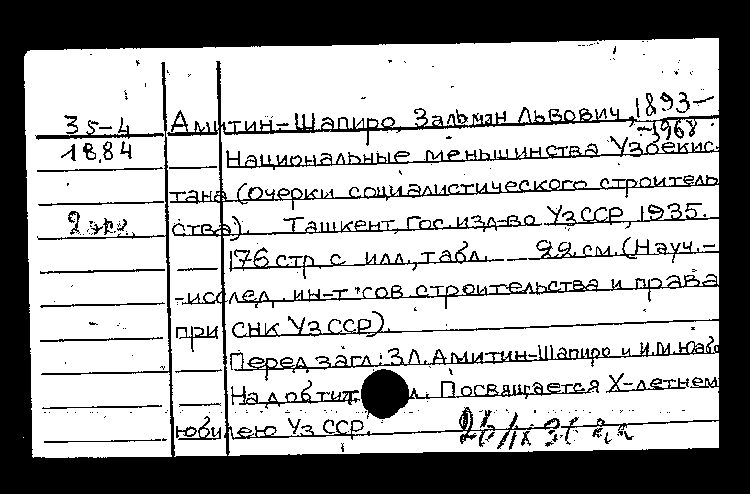 35-4 Амитин-Шапиро, Зальман Львович, 1893-
-1968
1884 Национальные меньшинства Узбекис-
тана (очерки социалистического строитель
2 экз. ства). Ташкент, Гос. изд-во УзССР, 1935.
176 стр. с илл., табл. 22 см. (Науч.-
-исслед. ин-т сов строительства и права
при СНК УзССР).
Перед загл: З.Л. Амитин-Шапиро и И.М.
На добтит. л. Посвящается X-летнем
юбилею УзССР.